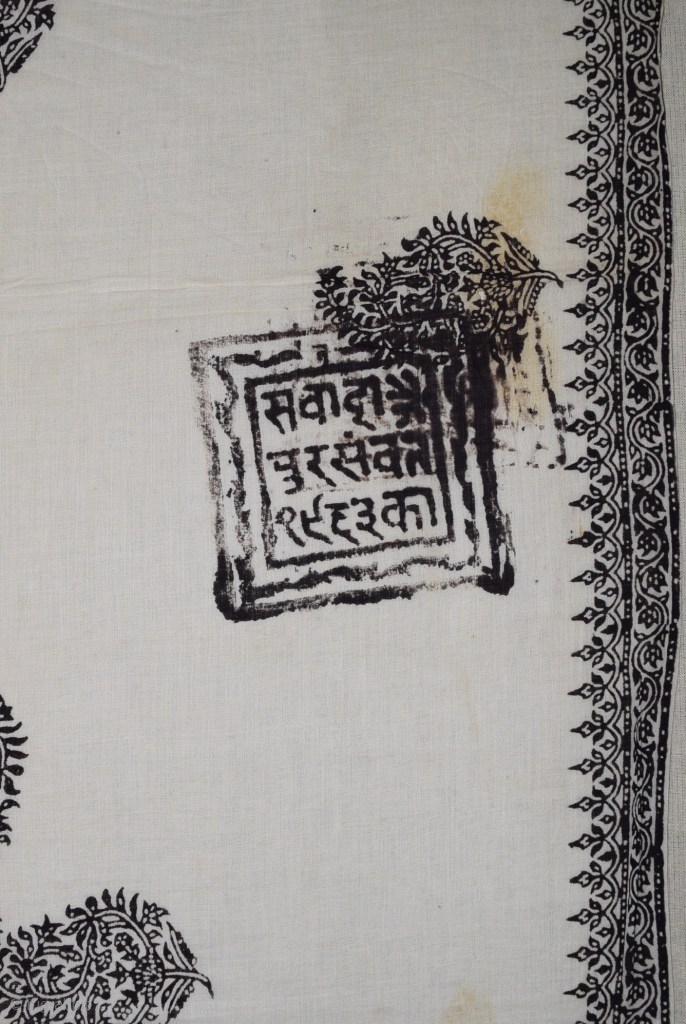 सवाई जै
पुर संवत
१९६३ का